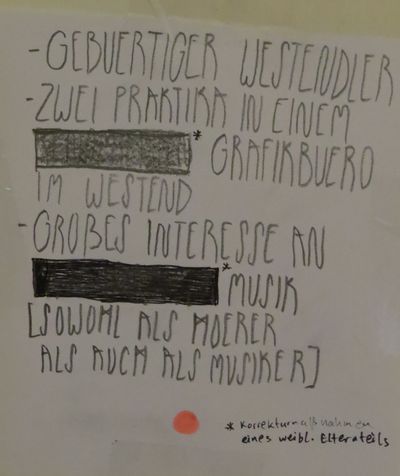 - GEBUERTIGER WESTENDLER
- ZWEI PRAKTIKA IN EINEM
* GRAFIKBUERO
IM WESTEND
- GROßES INTERESSE AN
* MUSIK
[SOWOHL ALS HOERER
ALS AUCH ALS MUSIKER]
* Korrekturmaßnahmen
eines weibl. Elternteils